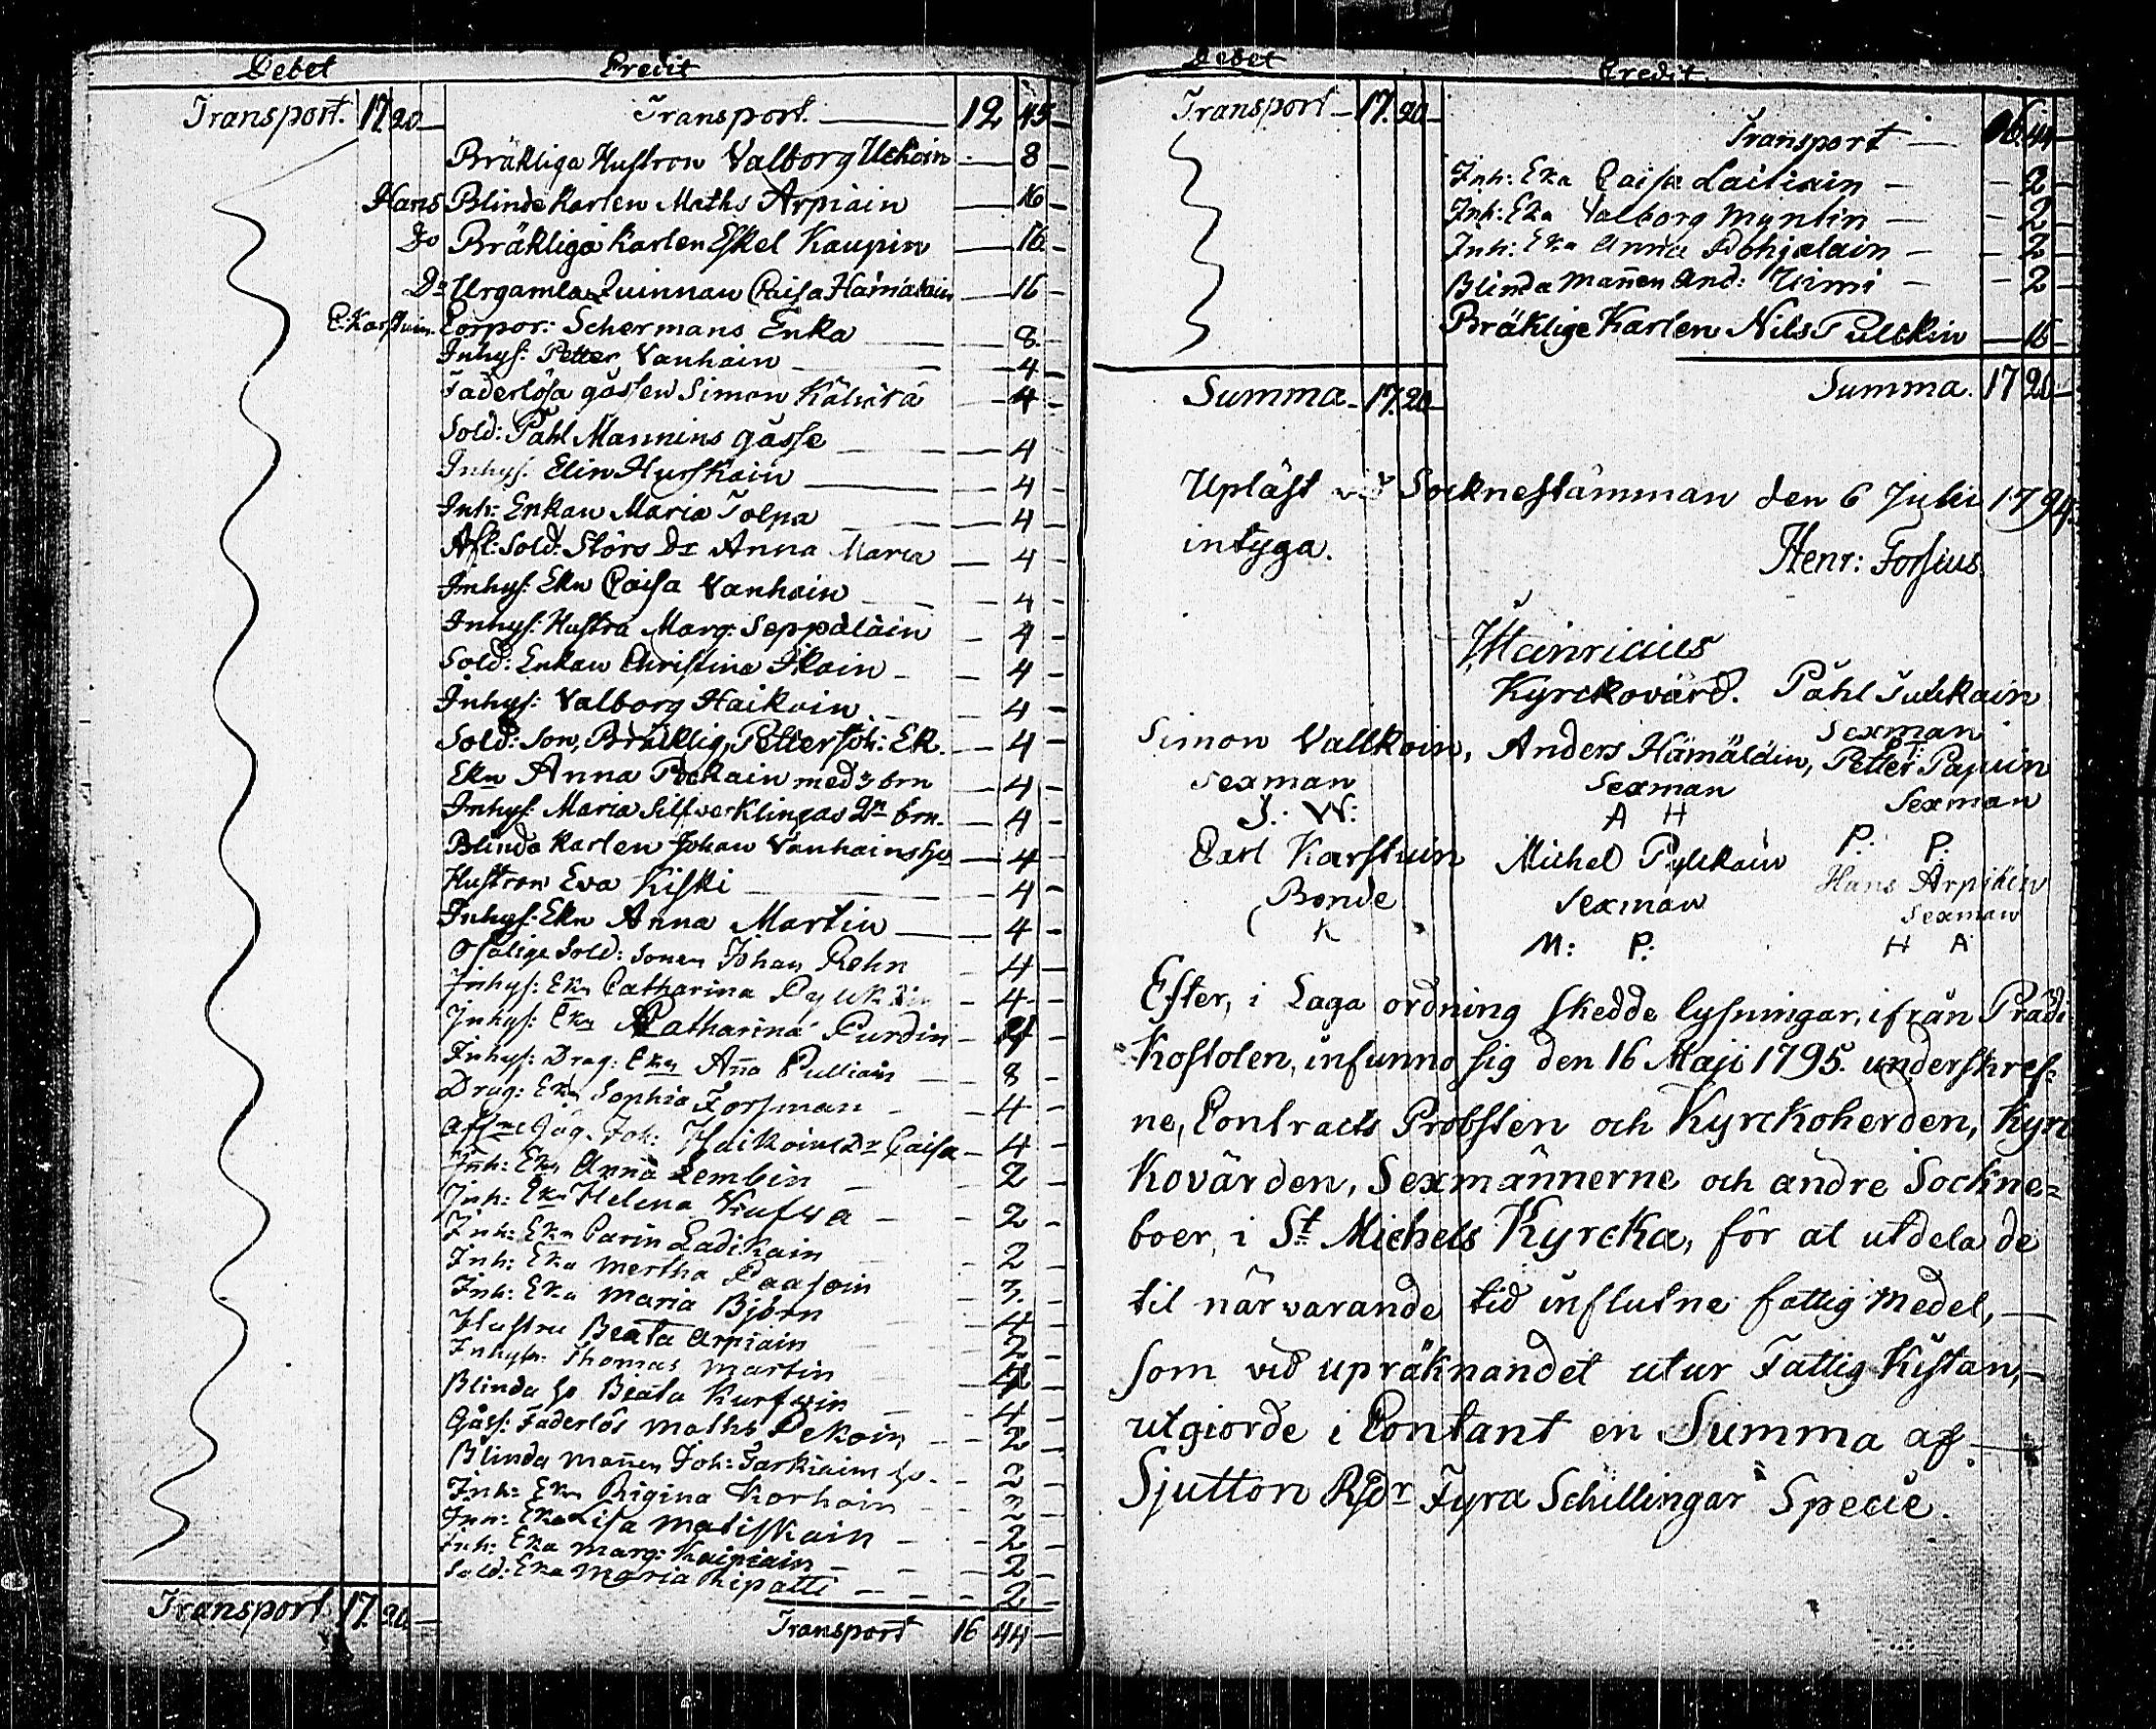 Debet Credit
Transport. 17. 20 — Transport. — 12 45 —
Bräkliga Hustron Valborg Ukoin — 8 —
Hans Blinde Karlen Maths Arpiain — 16 —
Do Bräkliga Karlen Eskel Kaupin — 16 —
Do Urgamla Quinnan Caisa Hämäläin — 16 —
C. Karstuin. Corpor: Schermans Enka — 8 —
Inhys: Petter Vanhain — 4 —
Faderlösa gossen Simon Kälvitä — 4 —
Sold: Pahl Mannins gosse — 4 —
Inhys: Elin Hyrskain — 4 —
Inh: Enkan Maria Tolpa — 4 —
Afl: Sold: Störs Dr Anna Maria — 4 —
Inhys: Ekn Caisa Vanhain — 4 —
Inhys: Hustra Marg: Seppäläin — 4 —
Sold: Enkan Christina Ikoin — 4 —
Inhys: Valborg Haikoin — 4 —
Sold: Son, Bräklig, Petter Joh: Ek. — 4 —
Ekn Anna Pekain med 3 brn — 4 —
Inhys: Maria Silfverklingas 2n brn. — 4 —
Blinda Karlen Johan Vanhains hu — 4 —
Hustron Eva Kiski — 4 —
Inhys: Ekn Anna Martin — 4 —
Ofälige Sold: Sonen Johan Rehn — 4 —
Inhys: Ekn Catharina Pylkkäin — 4 —
Inhys: Ekn Catharina Purdin — 4 —
Inhys: Drag: Ekn Anna Pulliain — 8 —
Drag: Ekn Sophia Forsman — 4 —
Afsne Jäg. Joh: Haikoins Dr Caisa — 4 —
Inh: Ekn Anna Lembin — 2
Inh: Ekn Helena Kufva — 2 —
Inh: Ekn Carin Ladikain — 2
Inh: Eka Mertha Paasoin — 3. —
Inh: Eka Maria Björn — 4 —
Hustru Beata Arpiain — 2 —
Inhys: Thomas Martin —
Blinda hu Beata Kurfvin — 4 —
Gåss: Faderlös Maths Pekoin — 2 —
Blinda Mannen Joh: Tarkiains hu. — 2 —
Inh: Ekn Rigina Korhoin — 2 —
Inh: Eka Lisa Matiskain — 2 —
Inh: Eka Marg: Kaipiain — 2 —
Sold: Eka Maria Ripatti — 2 —
Transport 17. 20 — Transport 16 44 —
Debet Credit.
Transport — 17. 20 — Transport — 16. 44 —
Inh: Eka Caisa Laitiain — 2 —
Inh: Eka Valborg Myntin — 2 —
Inh: Eka Anna Pohjalain — 2 —
Blinda Mannen And: Nirmi — 2 —
Bräklige Karlen Nils Pulkkin — 16 —
Summa — 17. 20 — Summa. 17 20 —
Upläst vid Socknestämman den 6 Julii 1794.
intyga. Henr: Forsius.
Heinricius
Kyrckovärd. Pahl Tuukain
Sexman
Simon Valkoin, Anders Hämäläin, Petter Papuin
Sexman Sexman Sexman
S. W: A H P. P.
Carl Karstuin Michel Pylkäin Hans Arpikin
Bonde Sexman Sexman
C K M: P: H A
Efter, i Laga ordning skedde lysningar, ifrån Prädi-
kostolen, infunno sig den 16 Maji 1795. underskref-
ne, Contracts Probsten och Kyrckoherden, Kyrc
kovärden, Sexmännerne och andre Sockne=
boer, i St Michels Kyrcka, för at utdela de
til närvarande tid influtne fattig Medel, —
som vid upräknandet utur Fattig Kistan, —
utgiorde i Contant en Summa af —
Sjutton Rdr Fyra Schillingar Specie.